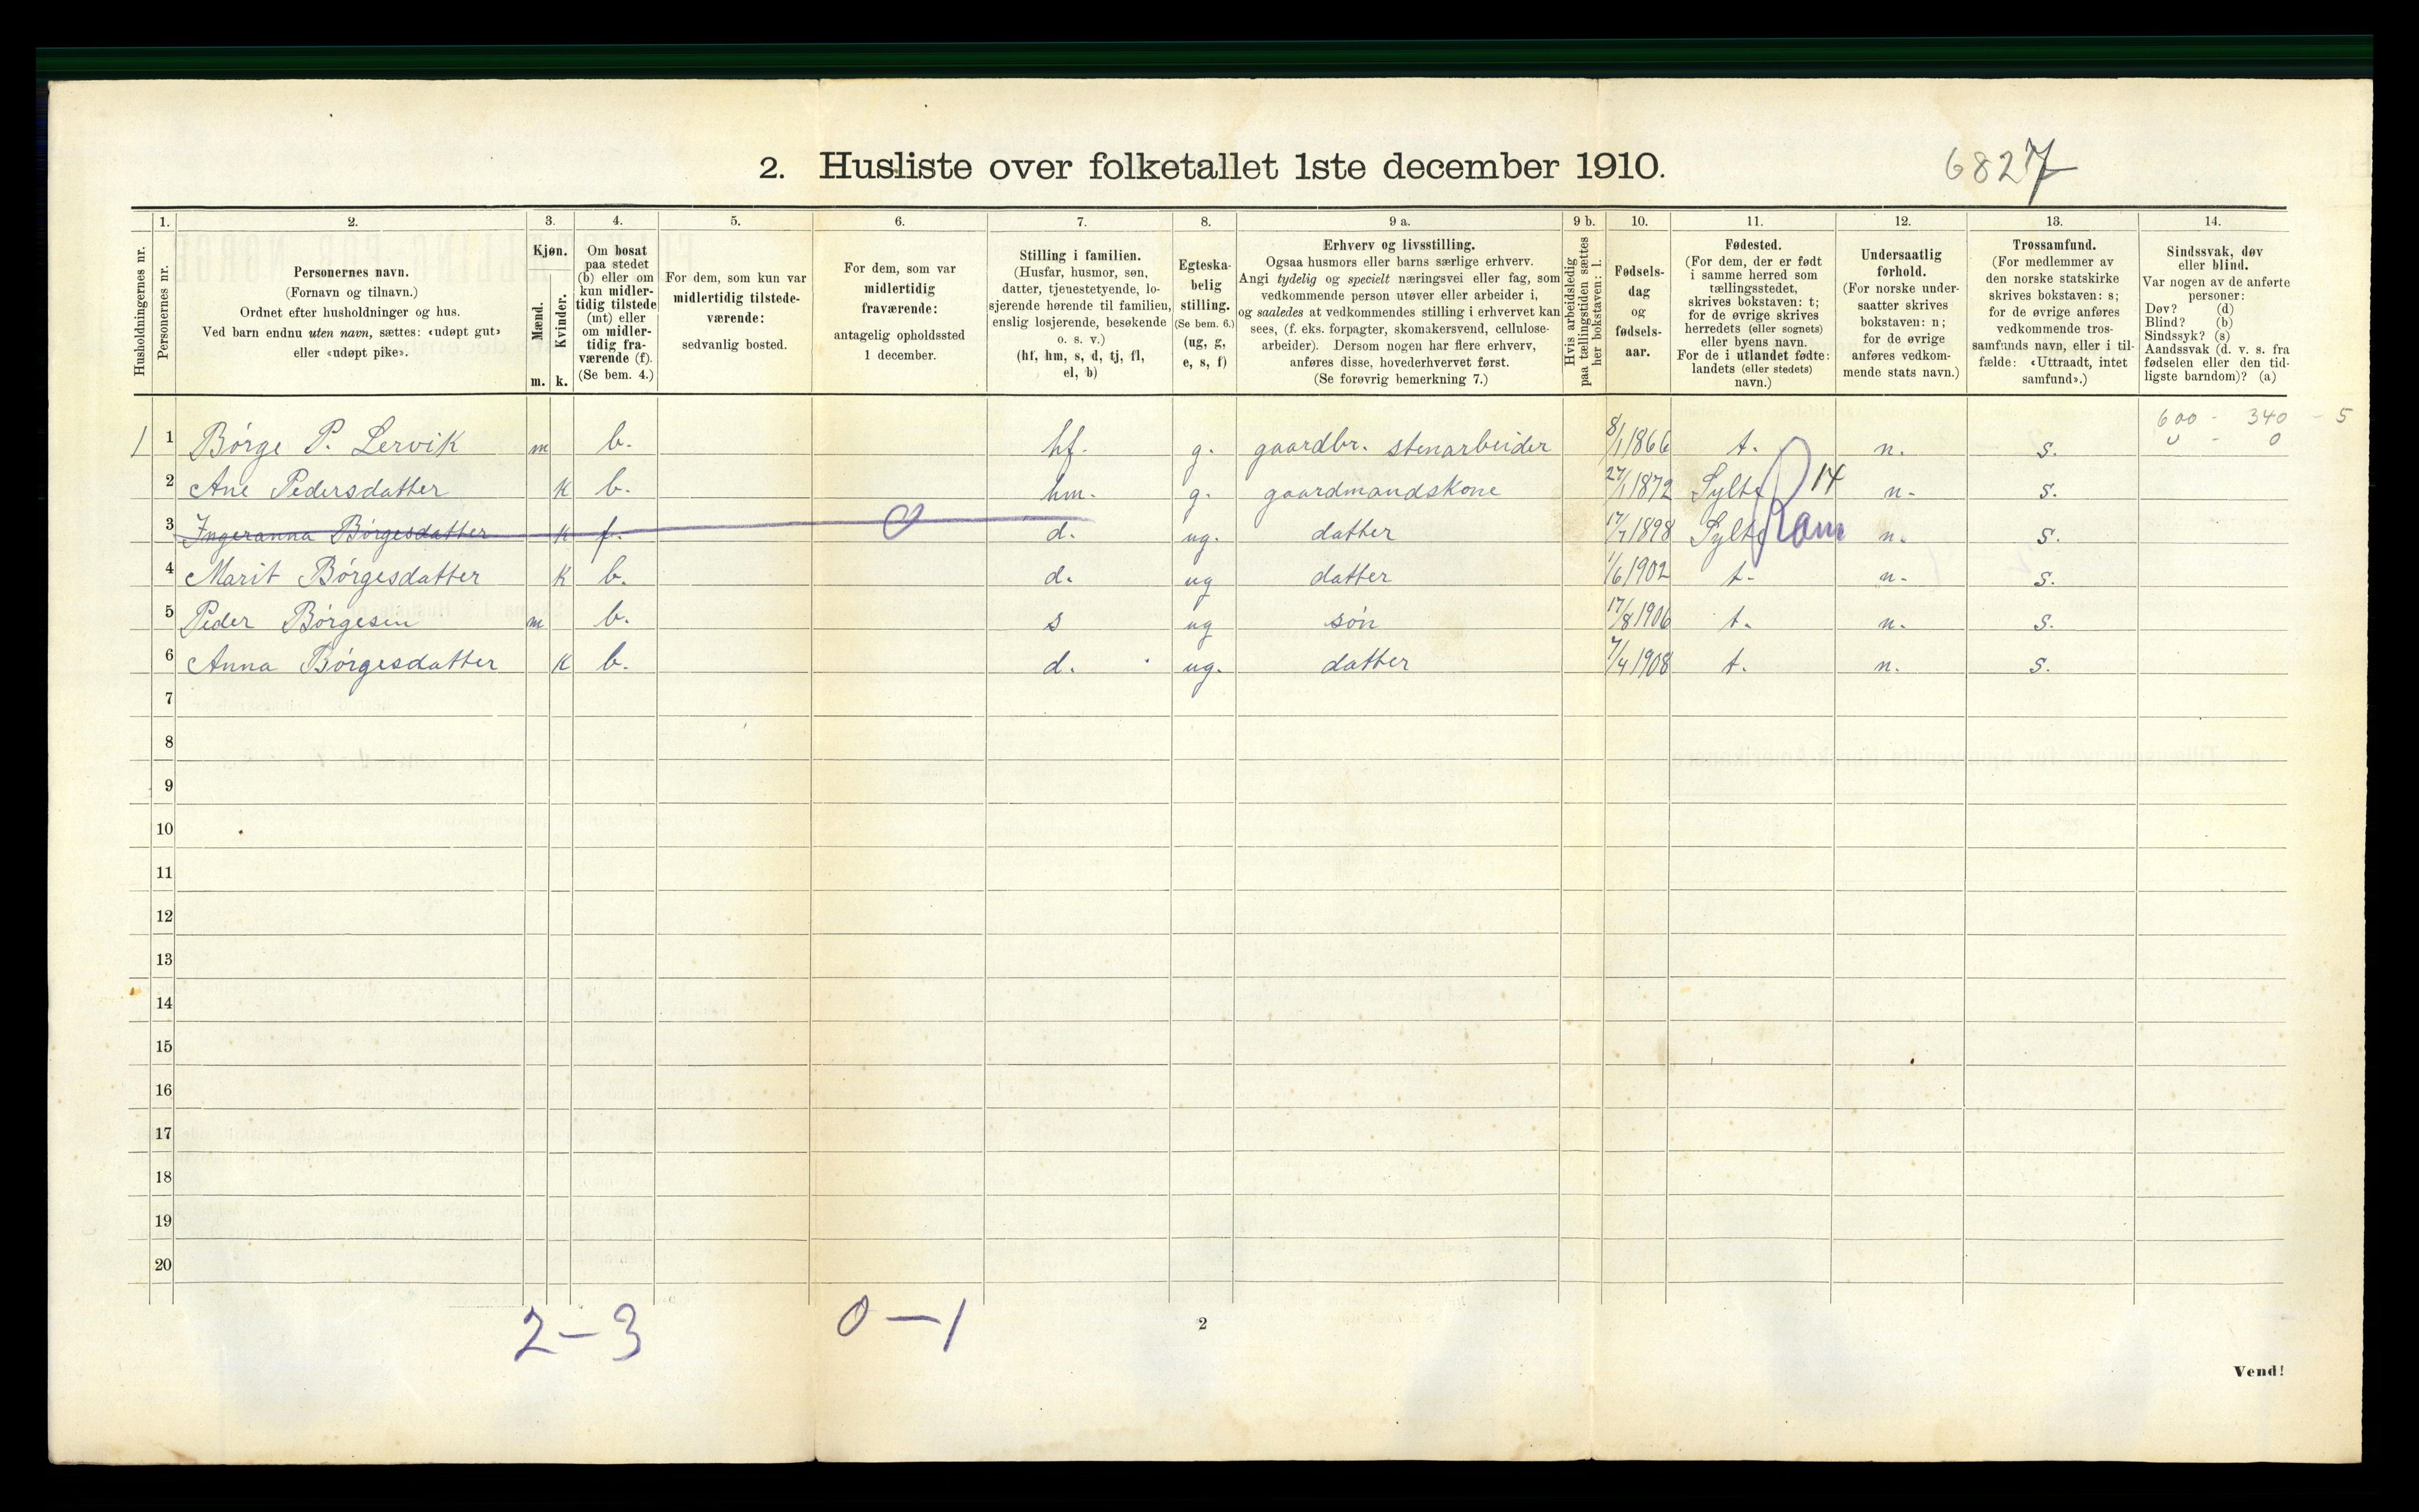 2. Husliste over folketallet 1ste december 1910.
6827
1. 2. 3. 4. 5. 6. 7. 8. 9 a. 9 b. 10. 11. 12. 13. 14.
Husholdningernes nr.
Personernes nr.
Personernes navn.
(Fornavn og tilnavn.)
Ordnet efter husholdninger og hus.
Ved barn endnu uten navn, sættes: «udøpt gut»
eller «udøpt pike».
Kjøn.
Mænd.
Kvinder.
m. k.
Om bosat
paa stedet
(b) eller om
kun midler-
tidig tilstede
(mt) eller
om midler-
tidig fra-
værende (f).
(Se bem. 4.)
For dem, som kun var
midlertidig tilstede-
værende:
sedvanlig bosted.
For dem, som var
midlertidig
fraværende:
antagelig opholdssted
1 december.
Stilling i familien.
(Husfar, husmor, søn,
datter, tjenestetyende, lo-
sjerende hørende til familien,
enslig losjerende, besøkende
o. s. v.)
(hf, hm, s, d, tj, fl,
el, b)
Egteska-
belig
stilling.
(Se bem. 6.)
(ug, g,
e, s, f)
Erhverv og livsstilling.
Ogsaa husmors eller barns særlige erhverv.
Angi tydelig og specielt næringsvei eller fag, som
vedkommende person utøver eller arbeider i,
og saaledes at vedkommendes stilling i erhvervet kan
sees, (f. eks. forpagter, skomakersvend, cellulose-
arbeider). Dersom nogen har flere erhverv,
anføres disse, hovederhvervet først.
(Se forøvrig bemerkning 7.)
Hvis arbeidsledig
paa tællingstiden sættes
her bokstaven: l.
Fødsels-
dag
og
fødsels-
aar.
Fødested.
(For dem, der er født
i samme herred som
tællingsstedet,
skrives bokstaven: t;
for de øvrige skrives
herredets (eller sognets)
eller byens navn.
For de i utlandet fødte:
landets (eller stedets)
navn.)
Undersaatlig
forhold.
(For norske under-
saatter skrives
bokstaven: n;
for de øvrige
anføres vedkom-
mende stats navn.)
Trossamfund.
(For medlemmer av
den norske statskirke
skrives bokstaven: s;
for de øvrige anføres
vedkommende tros-
samfunds navn, eller i til-
fælde: «Uttraadt, intet
samfund».)
Sindssvak, døv
eller blind.
Var nogen av de anførte
personer:
Døv? (d)
Blind? (b)
Sindssyk? (s)
Aandssvak (d. v. s. fra
fødselen eller den tid-
ligste barndom)? (a)
600 - 340 - 5
0 - 0
1 1 Børge P. Lervik m b. hf. g. gaardbr. stenarbeider 8/1 1866 t. n. s.
2 Ane Pedersdatter k b. hm. g. gaardmandskone 27/1 1872 Sylte 14 n. s.
3 Ingeranna Børgesdatter k f. d. ug. datter 17/7 1898 Sylte n. s.
4 Marit Børgesdatter k b. d. ug datter 1/6 1902 t. n. s.
5 Peder Børgesen m b. s ug søn 17/8 1906 t. n. s.
6 Anna Børgesdatter k b. d. ug. datter 7/4 1908 t. n. s.
7
8
9
10
11
12
13
14
15
16
17
18
19
20
2-3 0-1
2
Vend!